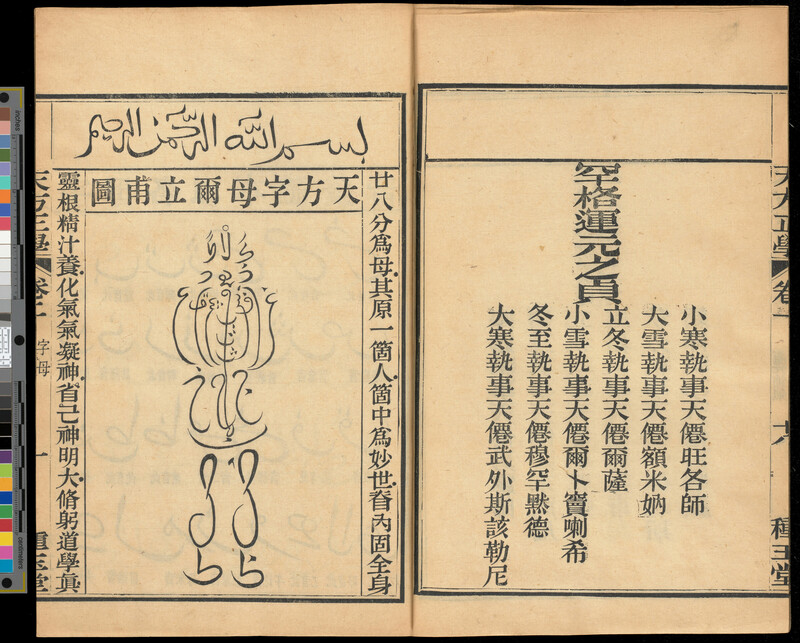 天方正學
卷一
種玉堂
空格運元之員
小寒執事天僊旺各師
大雪執事天僊額米妠
立冬執事天僊爾薩
小雪執事天僊爾卜竇喇希
冬至執事天僊穆罕黙德
大寒執事天僊武外斯該勒尼
بسم الله الرحمن الرحيم
廿八分爲母其原一箇人箇中爲妙世眷內固全身
天方字母爾立甫圖
靈根精汁養化氣氣凝神省己神明大脩躬道學眞
天方正學
字母
一
種玉堂
inches
centimeters